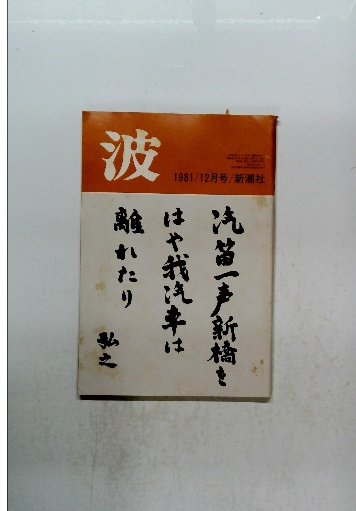 波
1981/12月号/新潮社
汽笛一声新橋を
はや我汽車は
離れたり
弘之